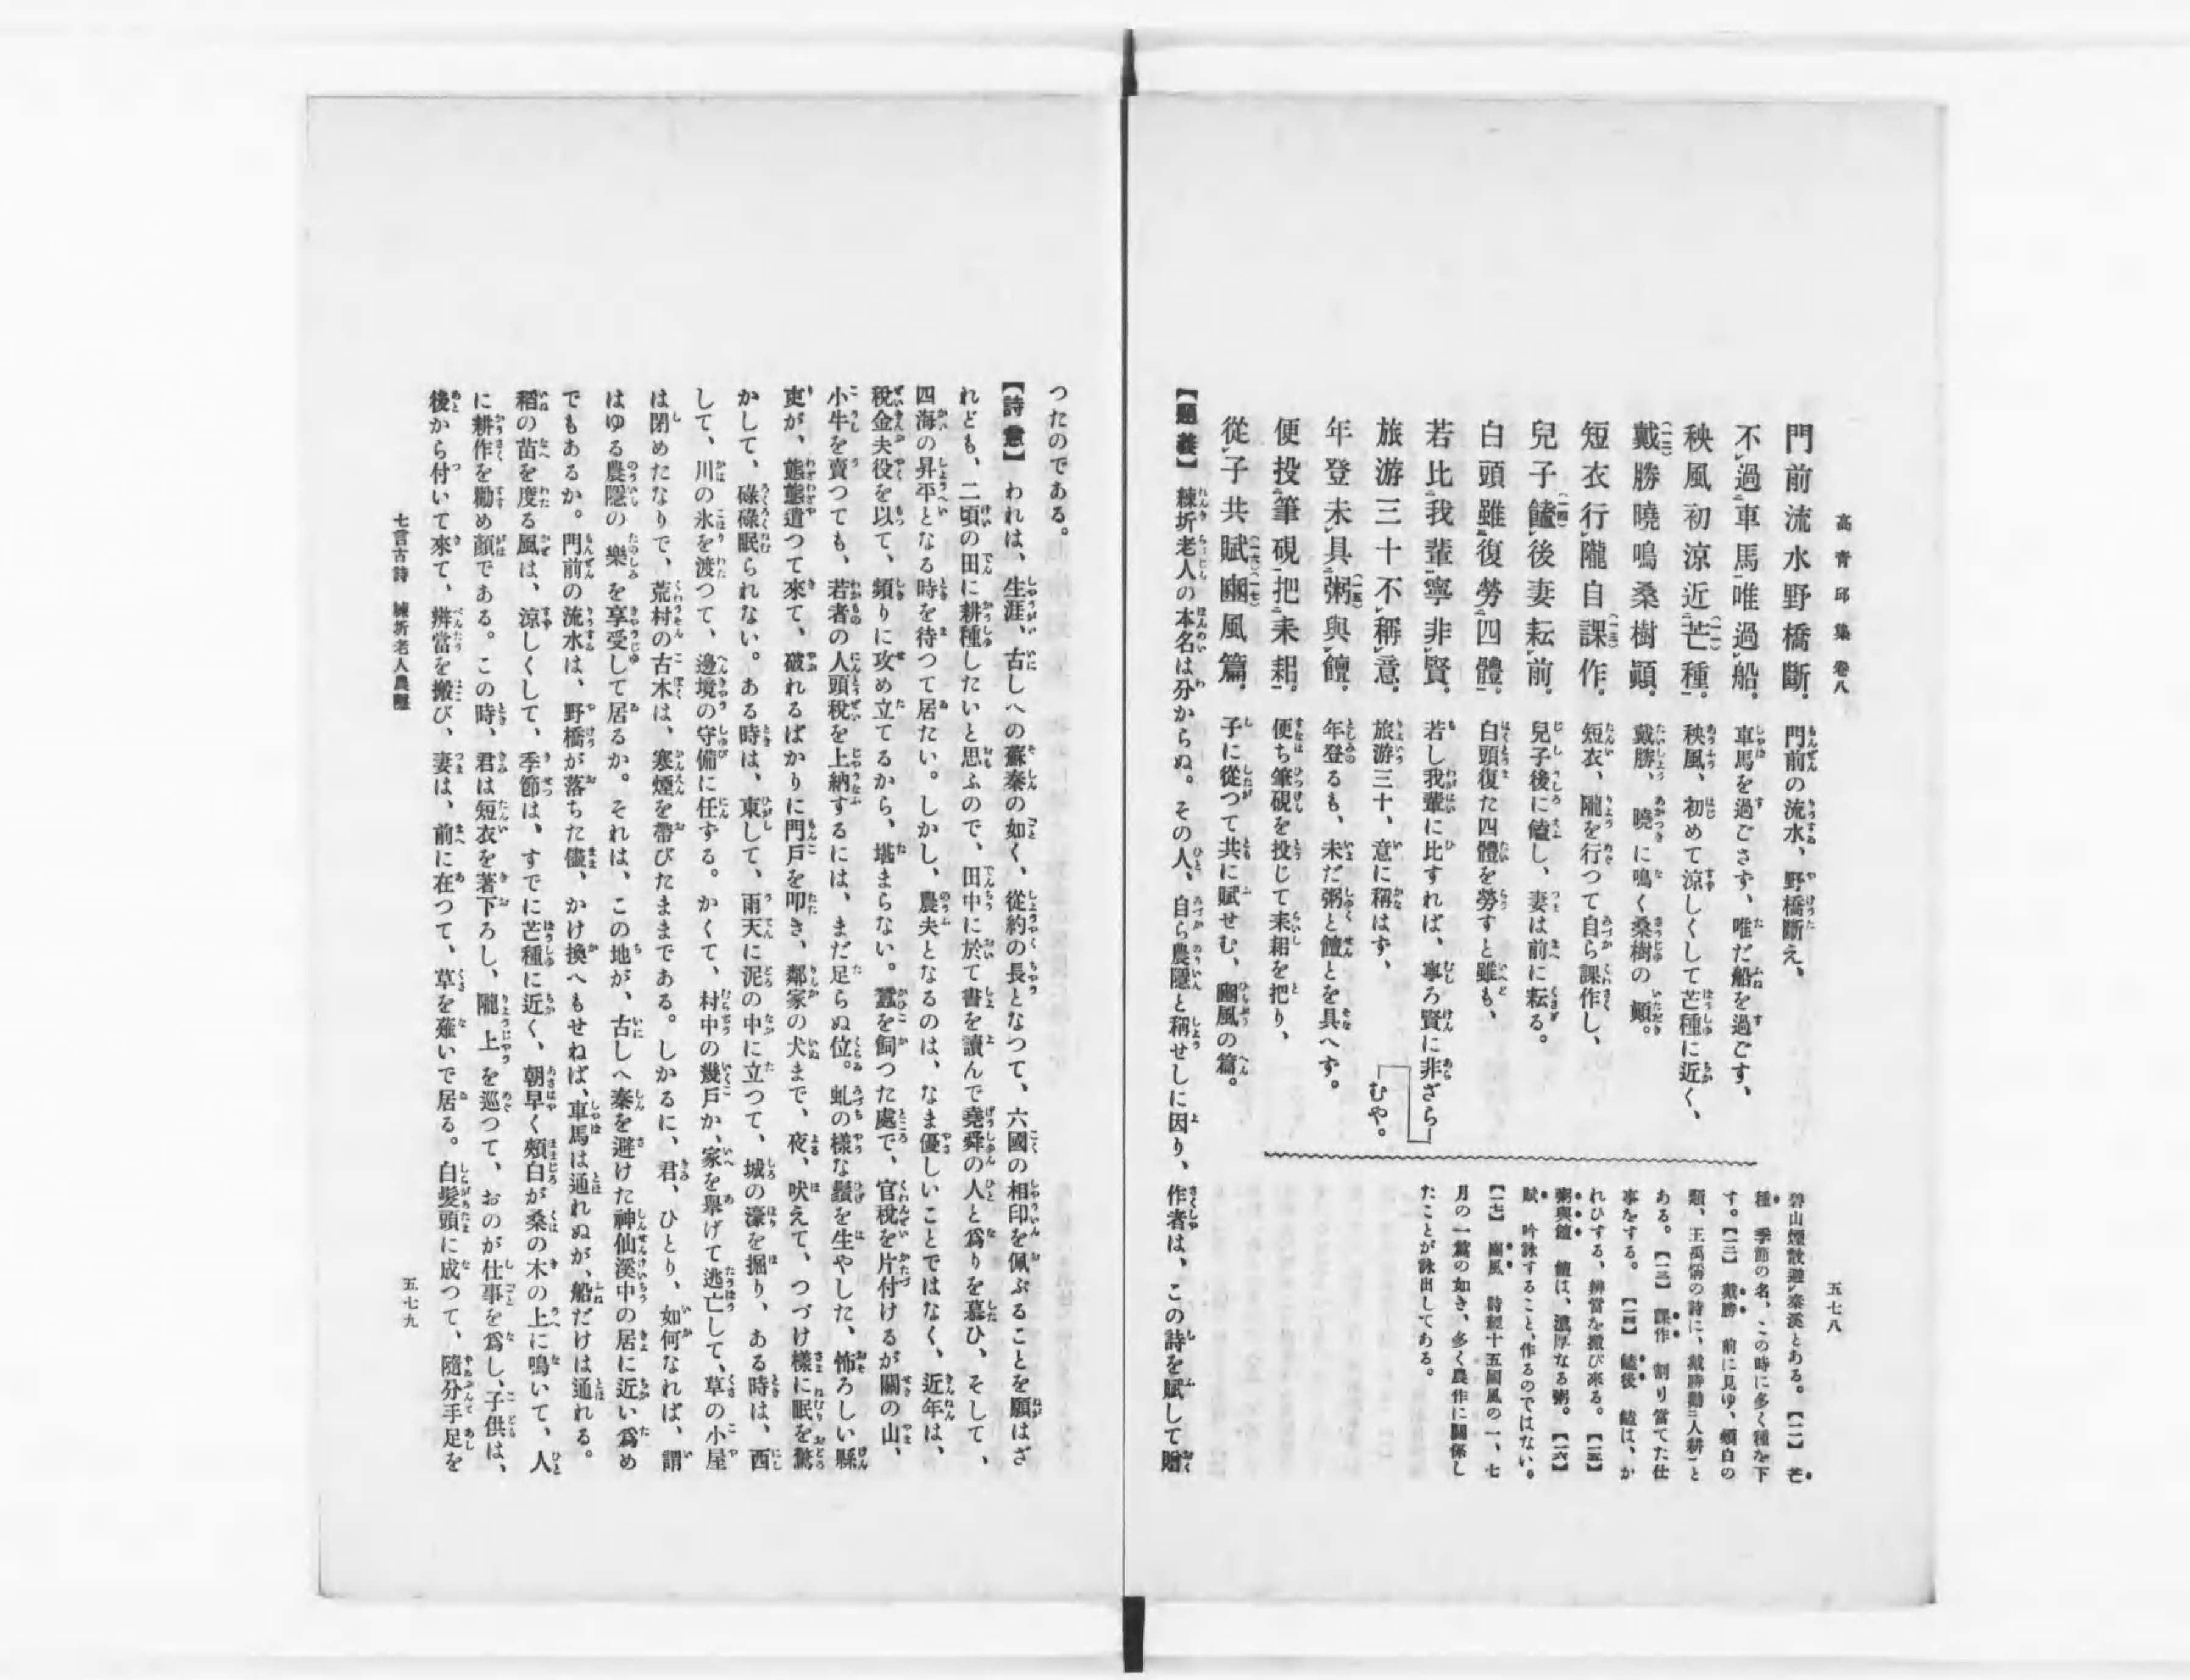 高青邱集 卷八
五七八
門前流水野橋斷。
不過車馬唯過船。
秧風初涼近芒種。
戴勝曉鳴桑樹顚。
短衣行隴自課作。
兒子饁後妻耘前。
白頭雖復勞四體。
若比我輩寧非賢。
旅游三十不稱意。
年登未具粥與饘。
便投筆硯把耒耜。
從子共賦豳風篇。
門前の流水、野橋斷え、
車馬を過ごさず、唯だ船を過ごす、
秧風、初めて涼しくして芒種に近く、
戴勝、曉に鳴く桑樹の顚。
短衣、隴を行つて自ら課作し、
兒子後に饁し、妻は前に耘る。
白頭復た四體を勞すと雖も、
若し我輩に比すれば、寧ろ賢に非ざら
むや。
旅游三十、意に稱はず、
年登るも、未だ粥と饘とを具へず。
便ち筆硯を投じて耒耜を把り、
子に從つて共に賦せむ、豳風の篇。
碧山煙散避秦溪とある。【一一】 芒
種 季節の名、この時に多く種を下
す。【一二】 戴勝 前に見ゆ、頰白の
類、王禹偁の詩に、戴勝勸人耕と
ある。【一三】 課作 割り當てた仕
事をする。【一四】 饁後 饁は、か
れひする、辨當を搬び來る。【一五】
粥與饘 饘は、濃厚なる粥。【一六】
賦 吟詠すること、作るのではない。
【一七】 豳風 詩經十五國風の一、七
月の一篇の如き、多く農作に關係し
たことが詠出してある。
【題義】 練圻老人の本名は分からぬ。その人、自ら農隱と稱せしに因り、作者は、この詩を賦して贈
つたのである。
【詩意】 われは、生涯、古しへの蘇秦の如く、從約の長となつて、六國の相印を佩ぶることを願はざ
れども、二頃の田に耕種したいと思ふので、田中に於て書を讀んで堯舜の人と爲りを慕ひ、そして、
四海の昇平となる時を待つて居たい。しかし、農夫となるのは、なま優しいことではなく、近年は、
稅金夫役を以て、頻りに攻め立てるから、堪まらない。蠶を飼つた處で、官稅を片付けるが關の山、
小牛を賣つても、若者の人頭稅を上納するには、まだ足らぬ位。虬の樣な鬚を生やした、怖ろしい縣
吏が、態態遣つて來て、破れるばかりに門戶を叩き、鄰家の犬まで、夜、吠えて、つづけ樣に眠を驚
かして、碌碌眠られない。ある時は、東して、雨天に泥の中に立つて、城の濠を掘り、ある時は、西
して、川の氷を渡つて、邊境の守備に任する。かくて、村中の幾戶か、家を擧げて逃亡して、草の小屋
は閉めたなりで、荒村の古木は、寒煙を帶びたままである。しかるに、君、ひとり、如何なれば、謂
はゆる農隱の樂を享受して居るか。それは、この地が、古しへ秦を避けた神仙溪中の居に近い爲め
でもあるか。門前の流水は、野橋が落ちた儘、かけ換へもせねば、車馬は通れぬが、船だけは通れる。
稻の苗を度る風は、涼しくして、季節は、すでに芒種に近く、朝早く頰白が桑の木の上に鳴いて、人
に耕作を勸め顏である。この時、君は短衣を著下ろし、隴上を巡つて、おのが仕事を爲し、子供は、
後から付いて來て、辨當を搬び、妻は、前に在つて、草を薙いで居る。白髮頭に成つて、隨分手足を
七言古詩 練圻老人農隱
五七九